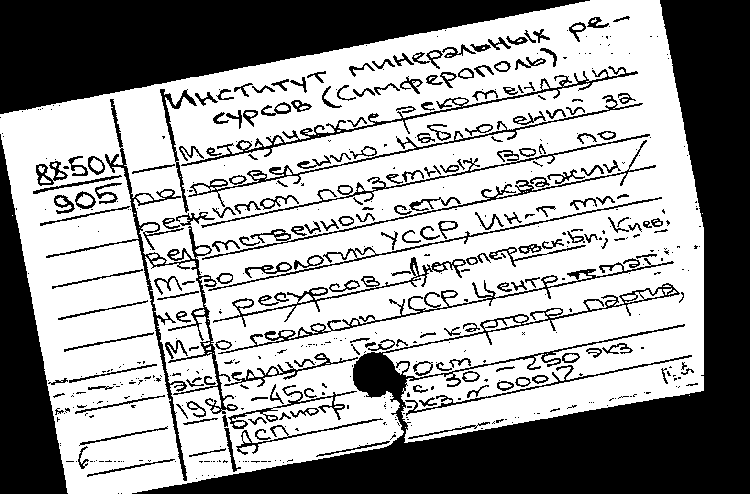 Институт минеральных ре-
сурсов (Симферополь).
Методические рекомендации
88-50К
905
по проведению наблюдений за
режимом подземных вод по
ведомственной сети скважин /
М-во геологии УССР, Ин-т ми-
нер. ресурсов. - Днепропетровск: Би., Киев:
М-во геологии УССР. Центр. темат.
экспедиция. Геол.-картогр. партия,
1986 - 45с.:
Библиогр. с. 30 - 250 экз.
ДСП. Экз. № 00017.
6